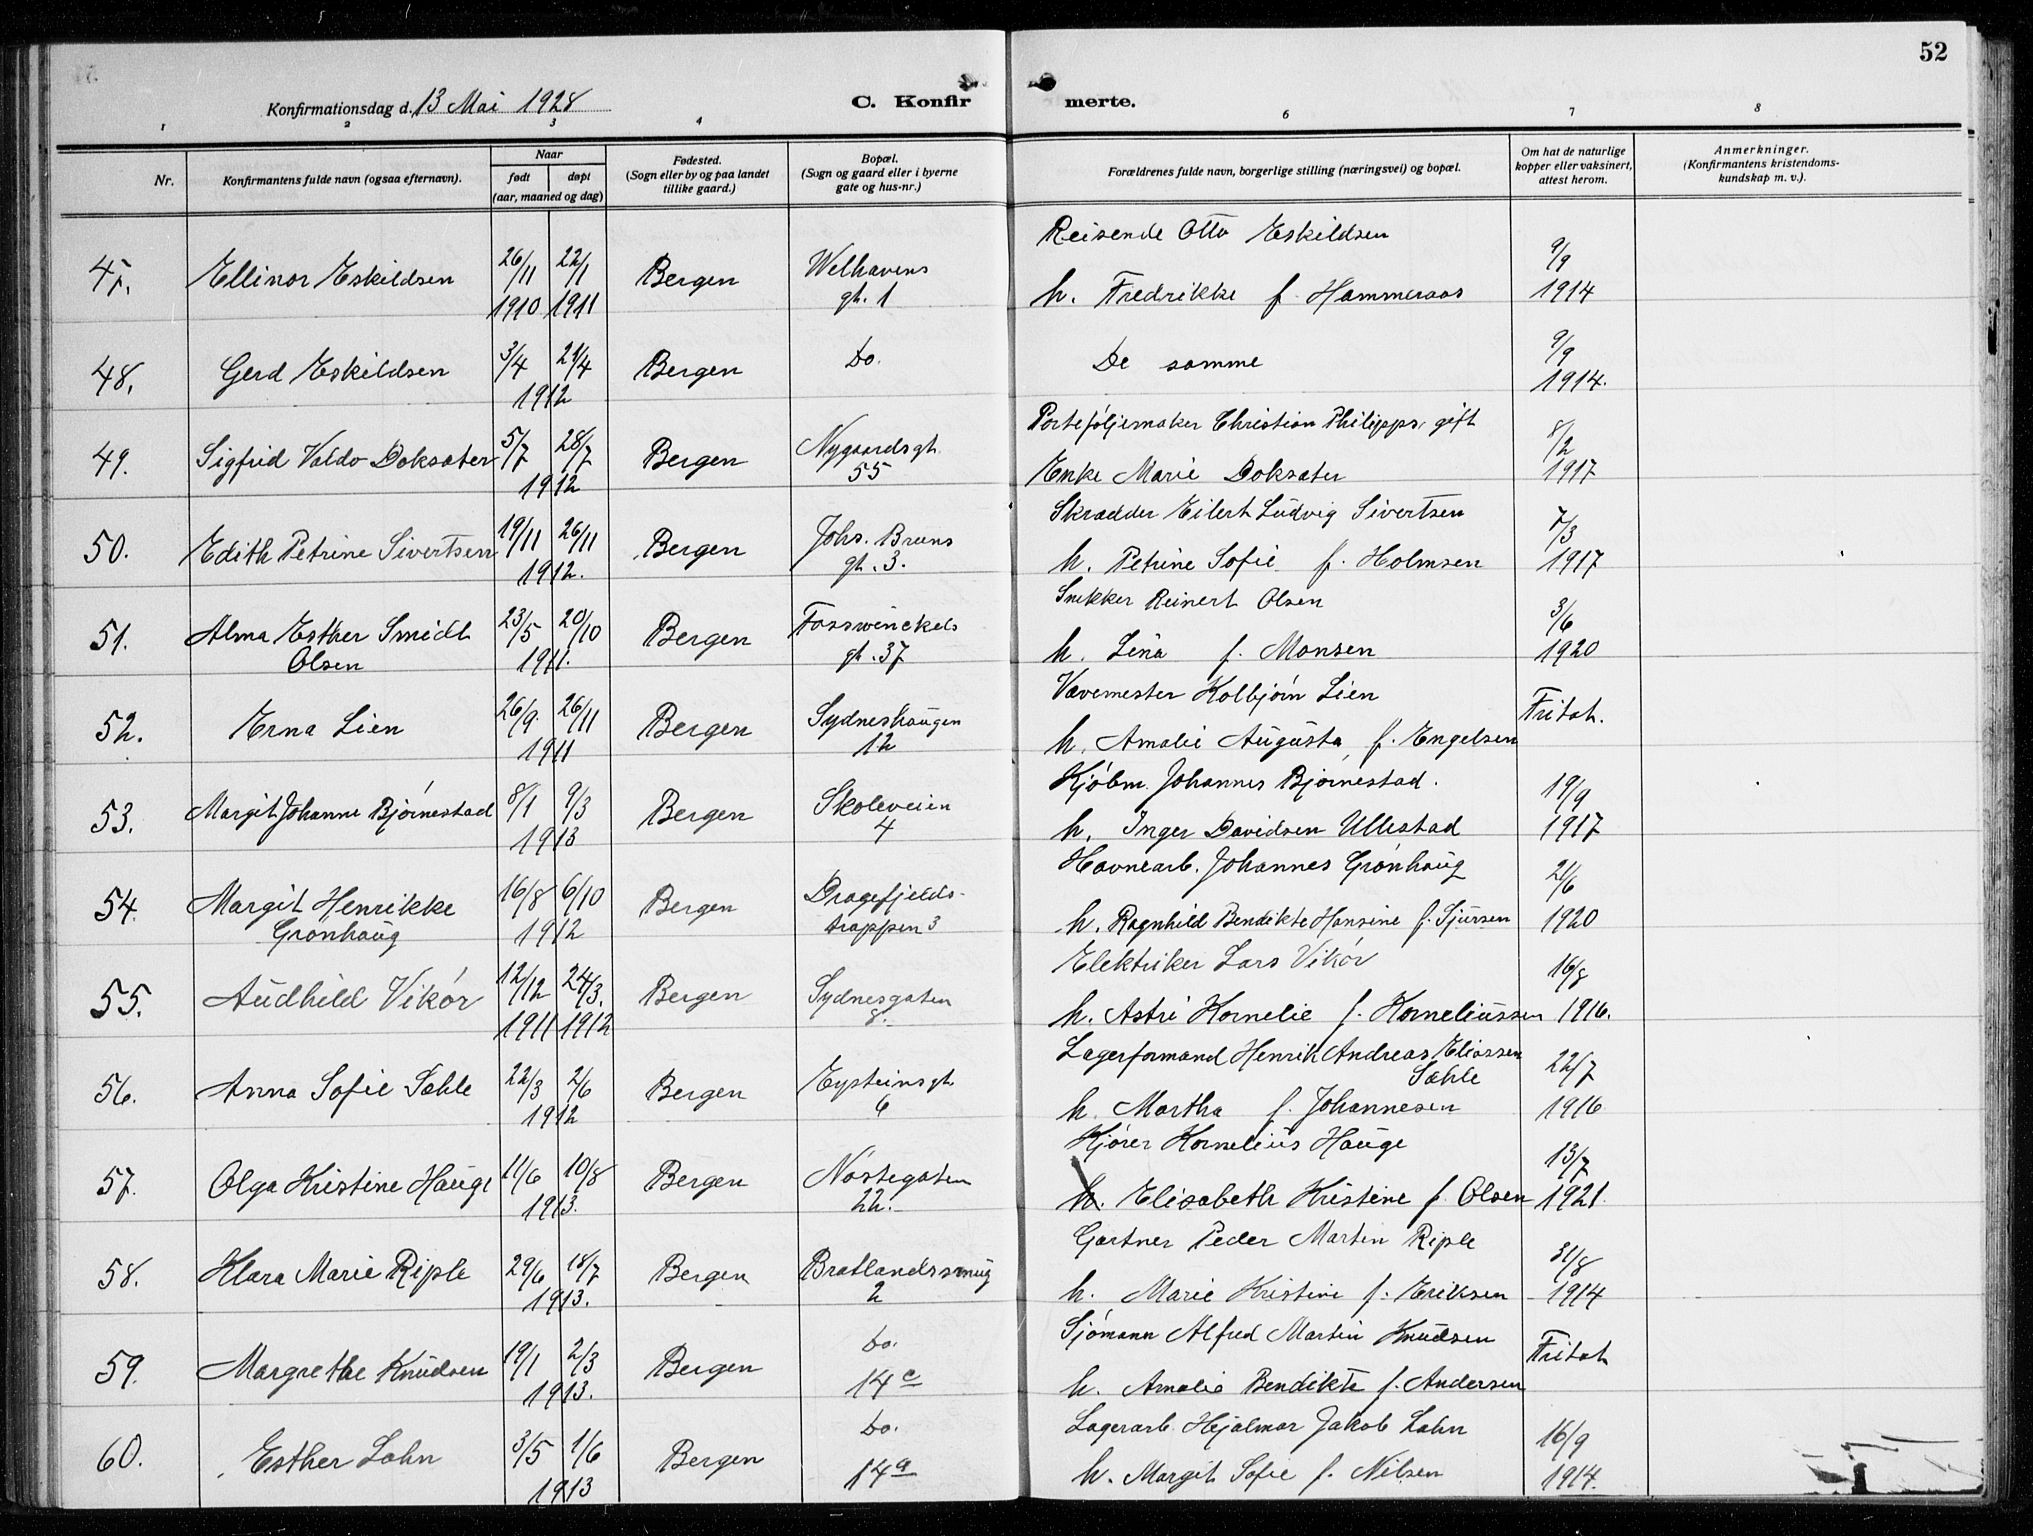 52
Konfirmationsdag d. 13 Mai 1928
C. Konfirmerte.
1 2 3 4 6 7 8
Nr.
Konfirmantens fulde navn (ogsaa efternavn).
Naar
født døpt
(aar, maaned og dag)
Fødested.
(Sogn eller by og paa landet
tillike gaard.)
Bopæl.
(Sogn og gaard eller i byerne
gate og hus-nr.)
Forældrenes fulde navn, borgerlige stilling (næringsvei) og bopæl.
Om hat de naturlige
kopper eller vaksinert,
attest herom.
Anmerkninger.
(Konfirmantens kristendoms-
kundskap m. v.).
Reisende Otto Eskildsen
47. Ellinor Eskildsen 26/11 22/1 Bergen Welhavens 9/9
1910 1911 gt. 1 h. Fredrikke f. Hammeraas 1914
48. Gerd Eskildsen 3/4 21/4 Bergen do. De samme 9/9
1912 1914.
Porteføljemaker Christian Philipps, gift
49. Sigfrid Valdo Doksæter 5/7 28/7 Bergen Nygaardsgt. 8/2
1912 55 Enke Marie Doksæter 1917
Skrædder Eilert Ludvig Sivertsen
50. Edith Petrine Sivertsen 19/11 26/11 Bergen Johs. Bruns 7/3
1912. gt. 3. h. Petrine Sofie f. Holmsen 1917
Snekker Reinert Olsen
51. Alma Esther Smidt 23/5 20/10 Bergen Fosswinckels 3/6
Olsen 1911. gt. 37 h. Lina f. Monsen 1920
Vævemester Kolbjørn Lien
52. Erna Lien 26/9. 26/11 Bergen Sydneshaugen Fritat.
1911 12 h. Amalie Augusta f. Engelsen
Kjøbm. Johannes Bjørnestad.
53. Margit Johanne Bjørnestad 8/1 9/3 Bergen Skoleveien 19/9
1913 4 h. Inger Davidsen Ullestad 1917
Havnearb. Johannes Grønhaug
54. Margit Henrikke 16/8 6/10 Bergen Dragefjelds- 21/6
Grønhaug 1912 trappen 3 h. Ragnhild Bendikte Hansine f. Sjursen 1920
Elektriker Lars Vikør
55. Audhild Vikør 12/12 24/3. Bergen Sydnesgaten 16/8
1911 1912 8. h. Astri Kornelie f. Korneliussen 1916.
Lagerformand Henrik Andreas Eliassen
Sæhle
56. Anna Sofie Sæhle 22/3 2/6 Bergen Eysteinsgt. 22/7
1912 6 h. Martha f. Johannesen 1916
Kjører Kornelius Hauge
57. Olga Kristine Hauge 11/6 10/8 Bergen Nøstegaten 13/7
1913. 22. h. Elisabeth Kristine f. Olsen 1921.
Gartner Peder Martin Riple
58. Klara Marie Riple 29/6 18/7 Bergen Bratlandssmug 31/8
1913. 2 h. Marie Kristine f. Eriksen 1914
Sjømann Alfred Martin Knudsen
59. Margrethe Knudsen 19/1 2/3 Bergen do. Fritat
1913. 14 c h. Amalie Bendikte f. Andersen
Lagerarb. Hjalmar Jakob Lahn
60. Esther Lahn 3/5 1/6 Bergen do. 16/9
1913 14 a h. Margit Sofie f. Nilsen 1914.